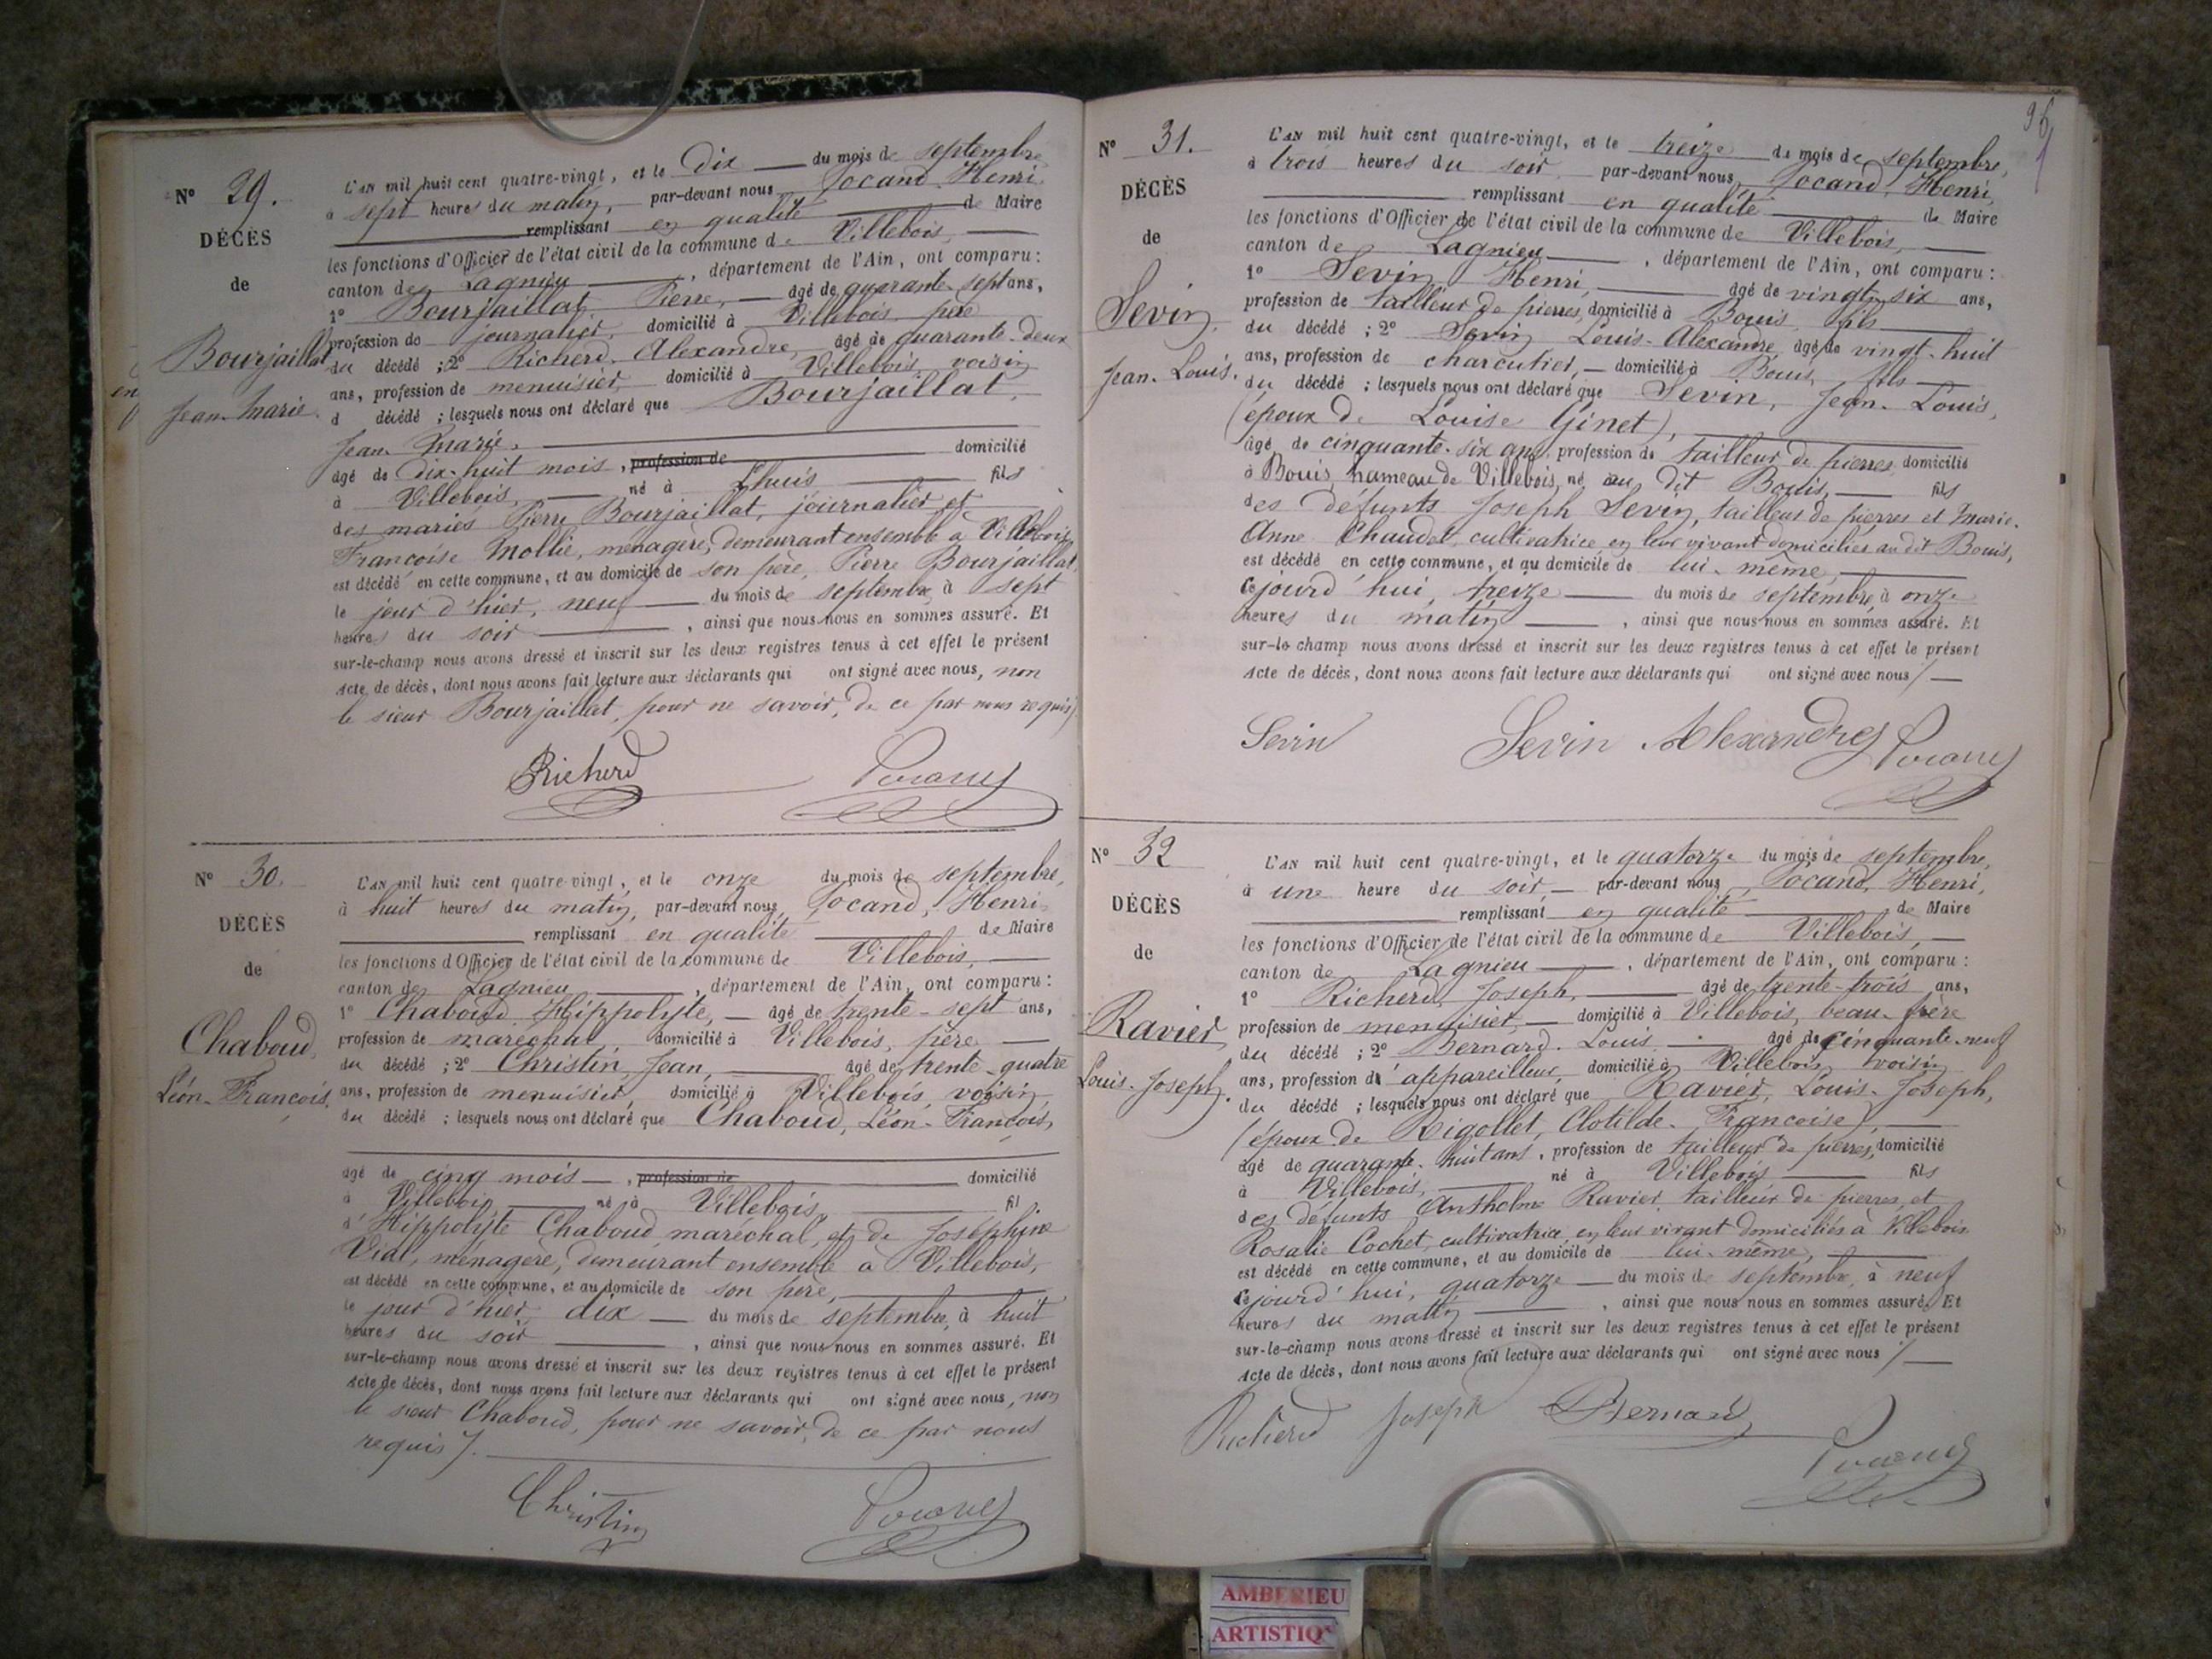 N° 29.
DÉCÈS
de
Bourjaillat
Jean-Marie.
L'AN mil huit cent quatre-vingt, et le Dix du mois de septembre
à sept heures du matin, par-devant nous Jocand Henri,
remplissant en qualité de Maire
les fonctions d'Officier de l'état civil de la commune de Villebois,
canton de Lagnieu, département de l'Ain, ont comparu :
1° Bourjaillat Pierre, âgé de quarante-sept ans,
profession de journalier, domicilié à Villebois père
du décédé ; 2° Richerd Alexandre, âgé de quarante-deux
ans, profession de menuisier, domicilié à Villebois, voisin
d décédé ; lesquels nous ont déclaré que Bourjaillat,
Jean-Marie,
âgé de dix-huit mois, profession de domicilié
à Villebois, né à Lhuis fils
des mariés Pierre Bourjaillat, journalier et
Françoise Mollie, ménagère, demeurant ensemble à Villebois,
est décédé en cette commune, et au domicile de son père, Pierre Bourjaillat,
le jour d'hier, neuf du mois de septembre à sept
heures du soir, ainsi que nous nous en sommes assuré. Et
sur-le-champ nous avons dressé et inscrit sur les deux registres tenus à cet effet le présent
acte de décès, dont nous avons fait lecture aux déclarants qui ont signé avec nous, non
le sieur Bourjaillat, pour ne savoir, de ce par nous requis/.
Richerd Jocand
N° 30.
DÉCÈS
de
Chaboud,
Léon-François.
L'AN mil huit cent quatre-vingt, et le onze du mois de septembre,
à huit heures du matin, par-devant nous, Jocand, Henri
remplissant en qualité de Maire
les fonctions d'Officier de l'état civil de la commune de Villebois,
canton de Lagnieu, département de l'Ain, ont comparu :
1° Chaboud Hippolyte, âgé de trente-sept ans,
profession de maréchal, domicilié à Villebois, père
du décédé ; 2° Christin, Jean, âgé de trente-quatre
ans, profession de menuisier, domicilié à Villebois, voisin,
du décédé ; lesquels nous ont déclaré que Chaboud, Léon-François,
âgé de cinq mois, profession de domicilié
à Villebois né à Villebois, fil
d'Hippolyte Chaboud maréchal, et de Joséphine
Vial, ménagère, demeurant ensemble à Villebois,
est décédé en cette commune, et au domicile de son père,
le jour d'hier, dix du mois de septembre, à huit
heures du soir, ainsi que nous nous en sommes assuré. Et
sur-le-champ nous avons dressé et inscrit sur les deux registres tenus à cet effet le présent
acte de décès, dont nous avons fait lecture aux déclarants qui ont signé avec nous, non
le sieur Chaboud, pour ne savoir, de ce par nous
requis/.
Christin Jocand
96
N° 31.
DÉCÈS
de
Sevin,
Jean-Louis.
L'AN mil huit cent quatre-vingt, et le treize du mois de septembre,
à trois heures du soir par-devant nous, Jocand, Henri,
remplissant en qualité de Maire
les fonctions d'Officier de l'état civil de la commune de Villebois,
canton de Lagnieu, département de l'Ain, ont comparu :
1° Sevin Henri, âgé de vingt-six ans,
profession de tailleur de pierres, domicilié à Bouis, fils
du décédé ; 2° Sevin Louis-Alexandre, âgé de vingt-huit
ans, profession de charcutier, domicilié à Bouis, fils
du décédé ; lesquels nous ont déclaré que Sevin, Jean-Louis,
(époux de Louise Ginet),
âgé de cinquante-six ans, profession de tailleur de pierres domicilié
à Bouis hameau de Villebois, né au dit Bouis, fils
des défunts Joseph Sevin, tailleur de pierres et Marie-
Anne Chaudet, cultivatrice, en leur vivant domiciliés au dit Bouis,
est décédé en cette commune, et au domicile de lui-même,
Cejourd'hui, treize du mois de septembre, à onze
heures du matin, ainsi que nous nous en sommes assuré. Et
sur-le-champ nous avons dressé et inscrit sur les deux registres tenus à cet effet le présent
acte de décès, dont nous avons fait lecture aux déclarants qui ont signé avec nous/.
Sevin Sevin Alexandre Jocand
N° 32
DÉCÈS
de
Ravier,
Louis-Joseph.
L'AN mil huit cent quatre-vingt, et le quatorze du mois de septembre,
à une heure du soir, par-devant nous, Jocand, Henri,
remplissant en qualité de Maire
les fonctions d'Officier de l'état civil de la commune de Villebois,
canton de Lagnieu, département de l'Ain, ont comparu :
1° Richerd, Joseph, âgé de trente-trois ans,
profession de menuisier, domicilié à Villebois, beau-frère
du décédé ; 2° Bernard Louis âgé de cinquante-neuf
ans, profession d'appareilleur, domicilié à Villebois, voisin
du décédé ; lesquels nous ont déclaré que Ravier, Louis-Joseph,
(époux de Rigollet, Clotilde-Françoise),
âgé de quarante-huit ans, profession de tailleur de pierres, domicilié
à Villebois, né à Villebois fils
des défunts Anthelme Ravier, tailleur de pierres, et
Rosalie Cochet, cultivatrice, en leur vivant domiciliés à Villebois
est décédé en cette commune, et au domicile de lui-même,
Cejourd'hui, quatorze du mois de septembre, à neuf
heures du matin, ainsi que nous nous en sommes assuré. Et
sur-le-champ nous avons dressé et inscrit sur les deux registres tenus à cet effet le présent
acte de décès, dont nous avons fait lecture aux déclarants qui ont signé avec nous/.
Richerd Joseph Bernard Jocand
AMBERIEU
ARTISTIQ